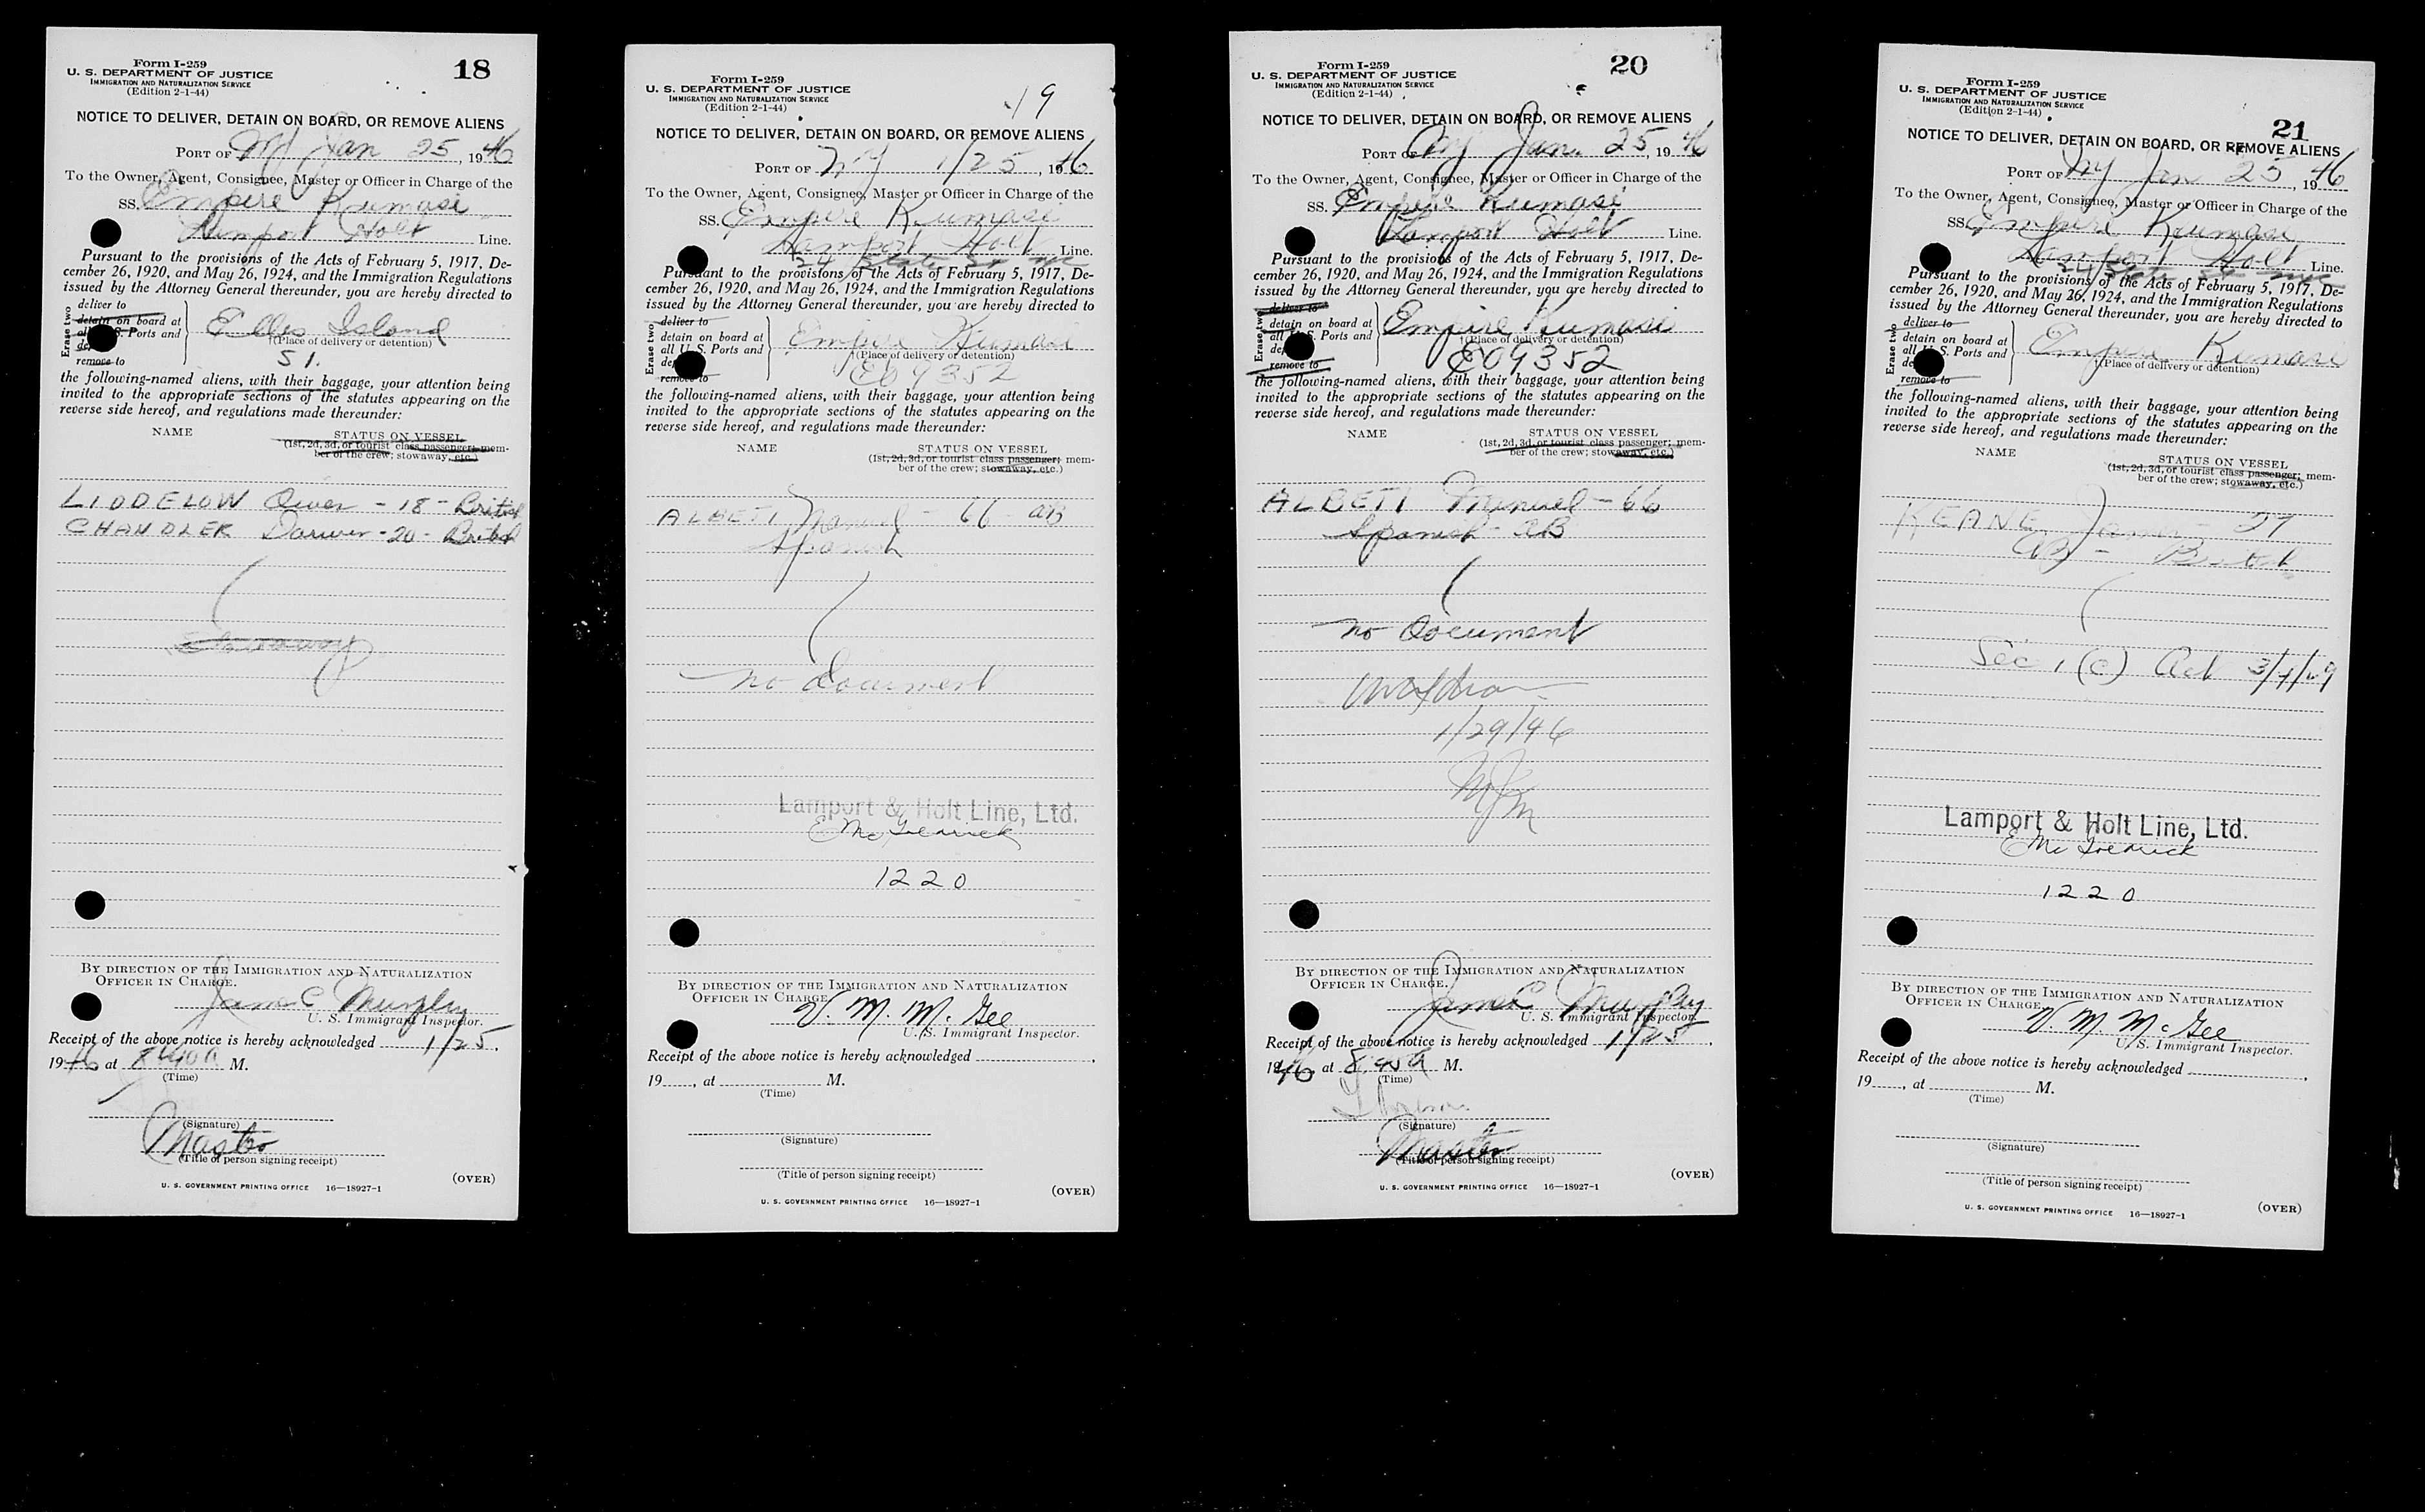 Form I-259
18
U. S. DEPARTMENT OF JUSTICE
IMMIGRATION AND NATURALIZATION SERVICE
(Edition 2-1-44)
NOTICE TO DELIVER, DETAIN ON BOARD, OR REMOVE ALIENS
PORT OF NY Jan 25, 1946
To the Owner, Agent, Consignee, Master or Officer in Charge of the
SS. Empire Kumasi
Lamport Holt Line.
Pursuant to the provisions of the Acts of February 5, 1917, De-
cember 26, 1920, and May 26, 1924, and the Immigration Regulations
issued by the Attorney General thereunder, you are hereby directed to
Erase two
deliver to
detain on board at
all U. S. Ports and
remove to
Ellis Island
†(Place of delivery or detention)
51.
the following-named aliens, with their baggage, your attention being
invited to the appropriate sections of the statutes appearing on the
reverse side hereof, and regulations made thereunder:
NAME STATUS ON VESSEL
(1st, 2d, 3d, or tourist class passenger; mem-
ber of the crew; stowaway, etc.)
LIDDELOW Owen - 18 - British
CHANDLER - 20 - British
Stowaway
BY DIRECTION OF THE IMMIGRATION AND NATURALIZATION
OFFICER IN CHARGE.
James C Murphy
U. S. Immigrant Inspector.
Receipt of the above notice is hereby acknowledged 1/25,
1946 at 8 40 a M.
(Time)
(Signature)
Master
(Title of person signing receipt)
(OVER)
U. S. GOVERNMENT PRINTING OFFICE 16—18927-1
Form I-259
19
U. S. DEPARTMENT OF JUSTICE
IMMIGRATION AND NATURALIZATION SERVICE
(Edition 2-1-44)
NOTICE TO DELIVER, DETAIN ON BOARD, OR REMOVE ALIENS
PORT OF NY 1/25, 1946
To the Owner, Agent, Consignee, Master or Officer in Charge of the
SS. Empire Kumasi
Lamport Holt Line.
24 State St NYC
Pursuant to the provisions of the Acts of February 5, 1917, De-
cember 26, 1920, and May 26, 1924, and the Immigration Regulations
issued by the Attorney General thereunder, you are hereby directed to
Erase two
deliver to
detain on board at
all U. S. Ports and
remove to
Empire Kumasi
†(Place of delivery or detention)
E09352
the following-named aliens, with their baggage, your attention being
invited to the appropriate sections of the statutes appearing on the
reverse side hereof, and regulations made thereunder:
NAME STATUS ON VESSEL
(1st, 2d, 3d, or tourist class passenger; mem-
ber of the crew; stowaway, etc.)
ALBETI Manuel - 66 - AB
Spanish
no document
Lamport & Holt Line, Ltd.
1220
BY DIRECTION OF THE IMMIGRATION AND NATURALIZATION
OFFICER IN CHARGE.
V. M. McGee
U. S. Immigrant Inspector.
Receipt of the above notice is hereby acknowledged
19 , at M.
(Time)
(Signature)
(Title of person signing receipt)
(OVER)
U. S. GOVERNMENT PRINTING OFFICE 16—18927-1
Form I-259
20
U. S. DEPARTMENT OF JUSTICE
IMMIGRATION AND NATURALIZATION SERVICE
(Edition 2-1-44)
NOTICE TO DELIVER, DETAIN ON BOARD, OR REMOVE ALIENS
PORT OF NY Jan. 25, 1946
To the Owner, Agent, Consignee, Master or Officer in Charge of the
SS. Empire Kumasi
Lamport Holt Line.
Pursuant to the provisions of the Acts of February 5, 1917, De-
cember 26, 1920, and May 26, 1924, and the Immigration Regulations
issued by the Attorney General thereunder, you are hereby directed to
Erase two
deliver to
detain on board at
all U. S. Ports and
remove to
Empire Kumasi
†(Place of delivery or detention)
E09352
the following-named aliens, with their baggage, your attention being
invited to the appropriate sections of the statutes appearing on the
reverse side hereof, and regulations made thereunder:
NAME STATUS ON VESSEL
(1st, 2d, 3d, or tourist class passenger; mem-
ber of the crew; stowaway, etc.)
ALBETI Manuel - 66
Spanish - AB
no Document
1/29/46
MJM
BY DIRECTION OF THE IMMIGRATION AND NATURALIZATION
OFFICER IN CHARGE.
James C Murphy
U. S. Immigrant Inspector.
Receipt of the above notice is hereby acknowledged 1/25,
1946, at 8 40 a M.
(Time)
(Signature)
Master
(Title of person signing receipt)
(OVER)
U. S. GOVERNMENT PRINTING OFFICE 16—18927-1
Form I-259
U. S. DEPARTMENT OF JUSTICE
IMMIGRATION AND NATURALIZATION SERVICE
(Edition 2-1-44)
21
NOTICE TO DELIVER, DETAIN ON BOARD, OR REMOVE ALIENS
PORT OF NY Jan 25, 1946
To the Owner, Agent, Consignee, Master or Officer in Charge of the
SS. Empire Kumasi
Lamport Holt Line.
24 State St NYC
Pursuant to the provisions of the Acts of February 5, 1917, De-
cember 26, 1920, and May 26, 1924, and the Immigration Regulations
issued by the Attorney General thereunder, you are hereby directed to
Erase two
deliver to
detain on board at
all U. S. Ports and
remove to
Empire Kumasi
†(Place of delivery or detention)
the following-named aliens, with their baggage, your attention being
invited to the appropriate sections of the statutes appearing on the
reverse side hereof, and regulations made thereunder:
NAME STATUS ON VESSEL
(1st, 2d, 3d, or tourist class passenger; mem-
ber of the crew; stowaway, etc.)
KEANE James - 27
AB - British
Sec 1 (c) Act 3/4/29
Lamport & Holt Line, Ltd.
1220
BY DIRECTION OF THE IMMIGRATION AND NATURALIZATION
OFFICER IN CHARGE.
V. M. McGee
U. S. Immigrant Inspector.
Receipt of the above notice is hereby acknowledged
19 , at M.
(Time)
(Signature)
(Title of person signing receipt)
(OVER)
U. S. GOVERNMENT PRINTING OFFICE 16—18927-1